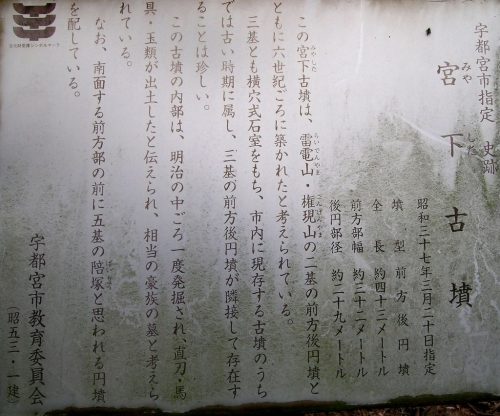 宇都宮市指定 史跡
宮下古墳
みやした
昭和三十七年三月二十日指定
墳型 前方後円墳
全長 約四十三メートル
前方部幅 約三十二メートル
後円部径 約二十九メートル
この宮下古墳は、雷電山・権現山の二基の前方後円墳と
みやした
らいでんやま
ごんげんやま
ともに六世紀ごろに築かれたと考えられている。
三基とも横穴式石室をもち、市内に現存する古墳のうち
では古い時期に属し、三基の前方後円墳が隣接して存在す
ることは珍しい。
この古墳の内部は、明治の中ごろ一度発掘され、直刀・馬
具・玉類が出土したと伝えられ、相当の豪族の墓と考えら
れている。
なお、南面する前方部の前に五基の陪塚と思われる円墳
ばいちょう
を配している。
宇都宮市教育委員会
(昭五三・一建